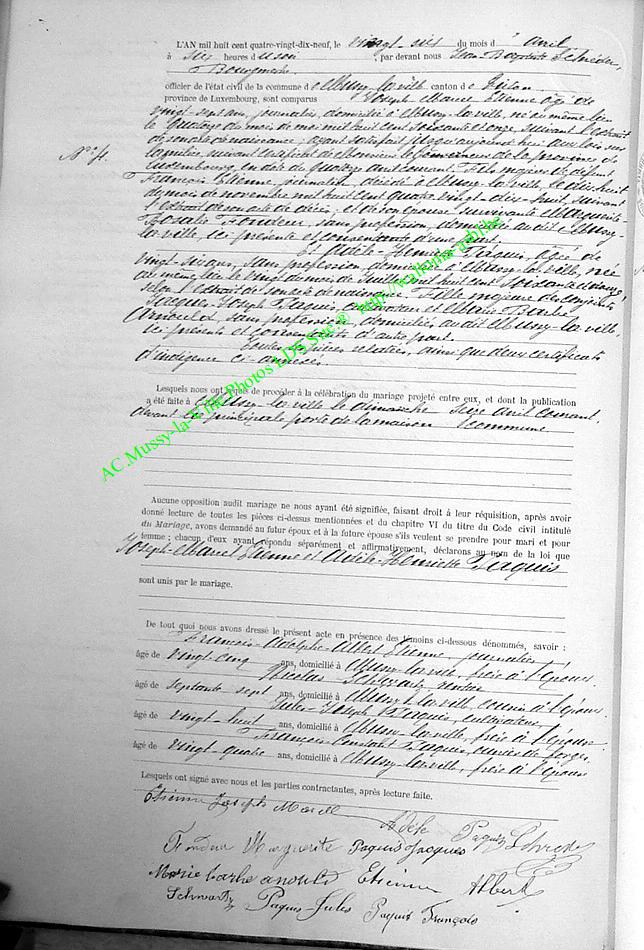 L'AN mil huit cent quatre-vingt-dix-neuf, le vingt-six du mois d'avril
à six heures du soir, par devant nous Jean Baptiste Schréder,
Bourgmestre
officier de l'état civil de la commune de Mussy-la-ville canton de Virton
province de Luxembourg, sont comparus Joseph Marcel Etienne âgé de
vingt-sept ans, journalier, domicilié à Mussy-la-ville, né au même lieu
le quatorze du mois de mai mil huit cent soixante et onze, suivant l'extrait
de son acte de naissance; ayant satisfait jusqu'aujourd'hui aux lois sur
la milice, suivant certificat de Monsieur le Gouverneur de la province de
Luxembourg, en date du quatorze avril courant. Fils majeur de défunt
N° 4.
François Etienne, journalier, décédé à Mussy-la-ville, le dix-huit
du mois de novembre mil huit cent quatre-vingt-dix-huit, suivant
l'extrait de son acte de décès; et de son épouse survivante Marguerite
Rosalie Frondeur, sans profession, domiciliée au dit Mussy-
la-ville, ici présente et consentante d'une part.
Et Adèle Henriette Paquis, âgée de
vingt-six ans, sans profession, domiciliée à Mussy-la-ville, née
au même lieu le vingt du mois de Juillet mil huit cent soixante et
selon l'extrait de son acte de naissance. Fille majeure des conjoints
Jacques Joseph Paquis, et Marie Barbe
Anould, sans profession, domiciliés au dit Mussy-la-ville,
ici présents et consentants d'autre part.
Toutes pièces relatées, ainsi que deux certificats
d'indigence ci-annexés.
Lesquels nous ont requis de procéder à la célébration du mariage projeté entre eux, et dont la publication
a été faite à Mussy-la-ville le dimanche seize avril courant,
devant la principale porte de la maison commune
Aucune opposition audit mariage ne nous ayant été signifiée, faisant droit à leur réquisition, après avoir
donné lecture de toutes les pièces ci-dessus mentionnées et du chapitre VI du titre du Code civil intitulé
du Mariage, avons demandé au futur époux et à la future épouse s'ils veulent se prendre pour mari et pour
femme; chacun d'eux ayant répondu séparément et affirmativement, déclarons au nom de la loi que
Joseph-Marcel Etienne et Adèle-Henriette Paquis
sont unis par le mariage.
De tout quoi nous avons dressé le présent acte en présence des témoins ci-dessous dénommés, savoir :
François-Adolphe-Albert Etienne journalier
âgé de vingt-cinq ans, domicilié à Mussy-la-ville, frère à l'époux.
Nicolas Schwartz, rentier
âgé de septante-sept ans, domicilié à Mussy-la-ville, cousin à l'époux.
Jules-Joseph Paquis, cultivateur,
âgé de vingt-huit ans, domicilié à Mussy-la-ville, frère à l'épouse
François-Constant Paquis, ouvrier de forges,
âgé de vingt-quatre ans, domicilié à Mussy-la-ville, frère à l'épouse
Lesquels ont signé avec nous et les parties contractantes, après lecture faite.
Etienne Joseph Marcel
Adèle Paquis Schréder
Frondeur Marguerite Paquis Jacques
Marie barbe anould Etienne Albert
Schwartz Paquis Jules Paquis François
AC.Mussy-la-Ville Photos LDS Suc ® http://wallonia-asbl.be